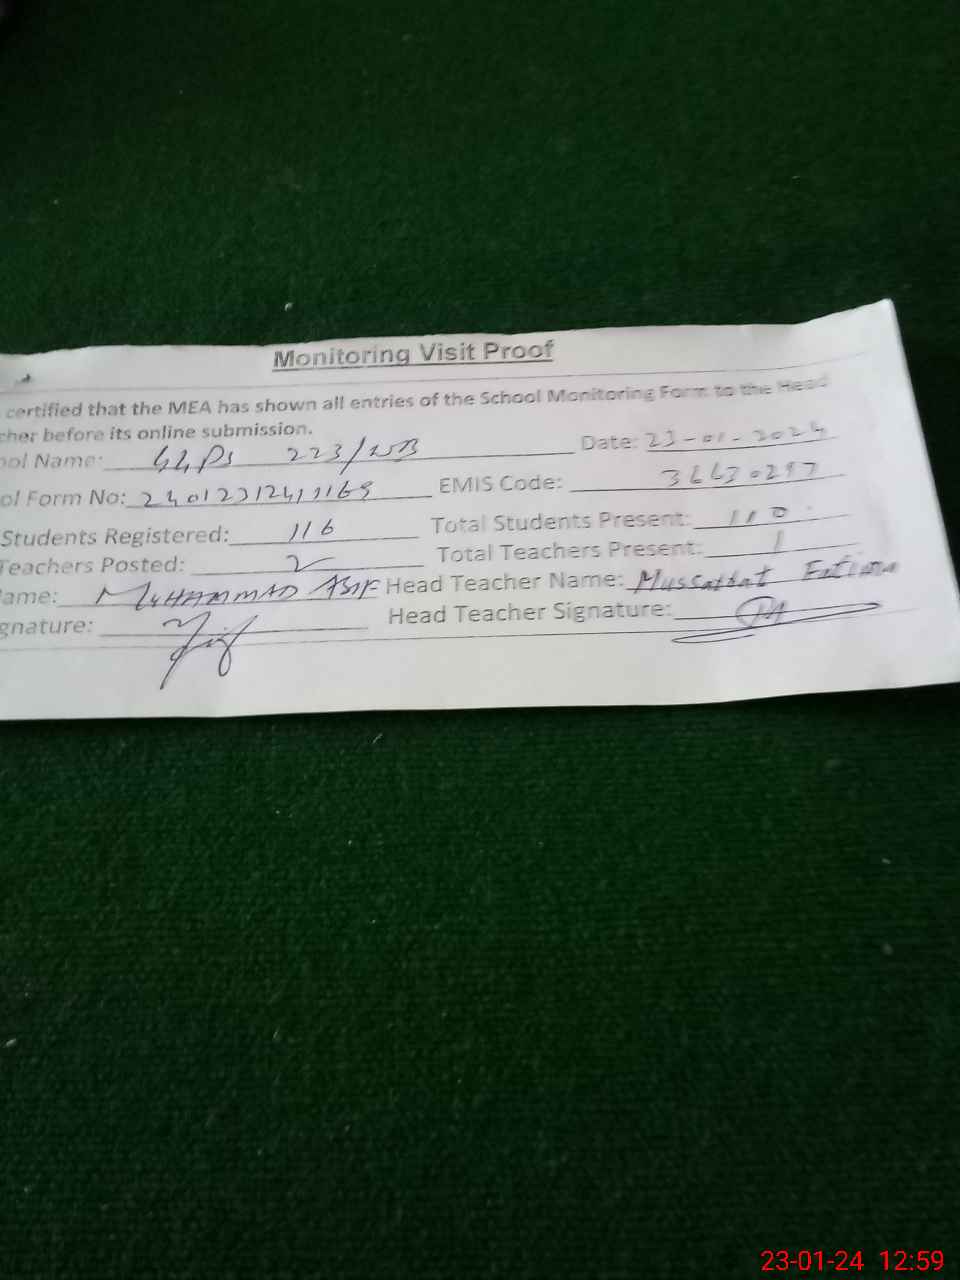 Monitoring Visit Proof
certified that the MEA has shown all entries of the School Monitoring Form to the Head
cher before its online submission.
ool Name: GGPS 223/ Date: 23-01-2024
ol Form No: EMIS Code:
Students Registered: 116 Total Students Present: 110
Teachers Posted: 2 Total Teachers Present: 1
ame: MUHAMMAD ASIF Head Teacher Name: Mussarrat Fatima
gnature: Head Teacher Signature:
23-01-24 12:59